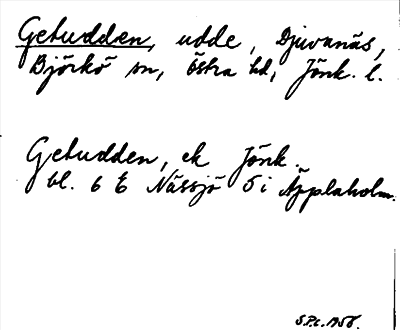 Getudden, udde, Djuvanäs,
Björkö sn, Östra hd, Jönk. l.
Getudden, ek Jönk.
bl. 6 E Nässjö 5 i Äpplaholm.
S.P.L. 1956.